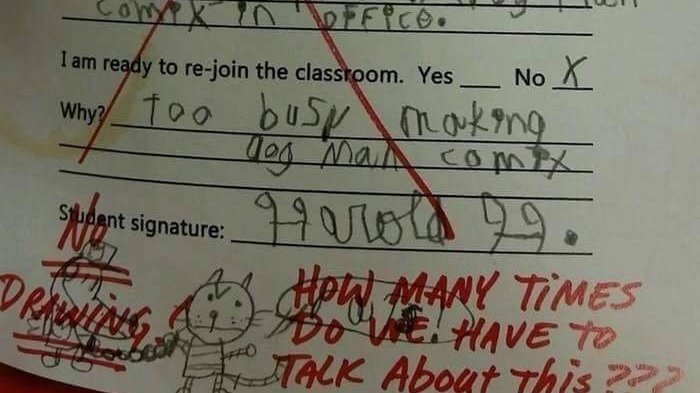 compx in office.
I am ready to re-join the classroom. Yes ___ No X
Why? too busy making
dog man compx
Student signature: Harold H.
No
DRAWING
HOW MANY TiMES
Do WE HAVE TO
TALK About This???